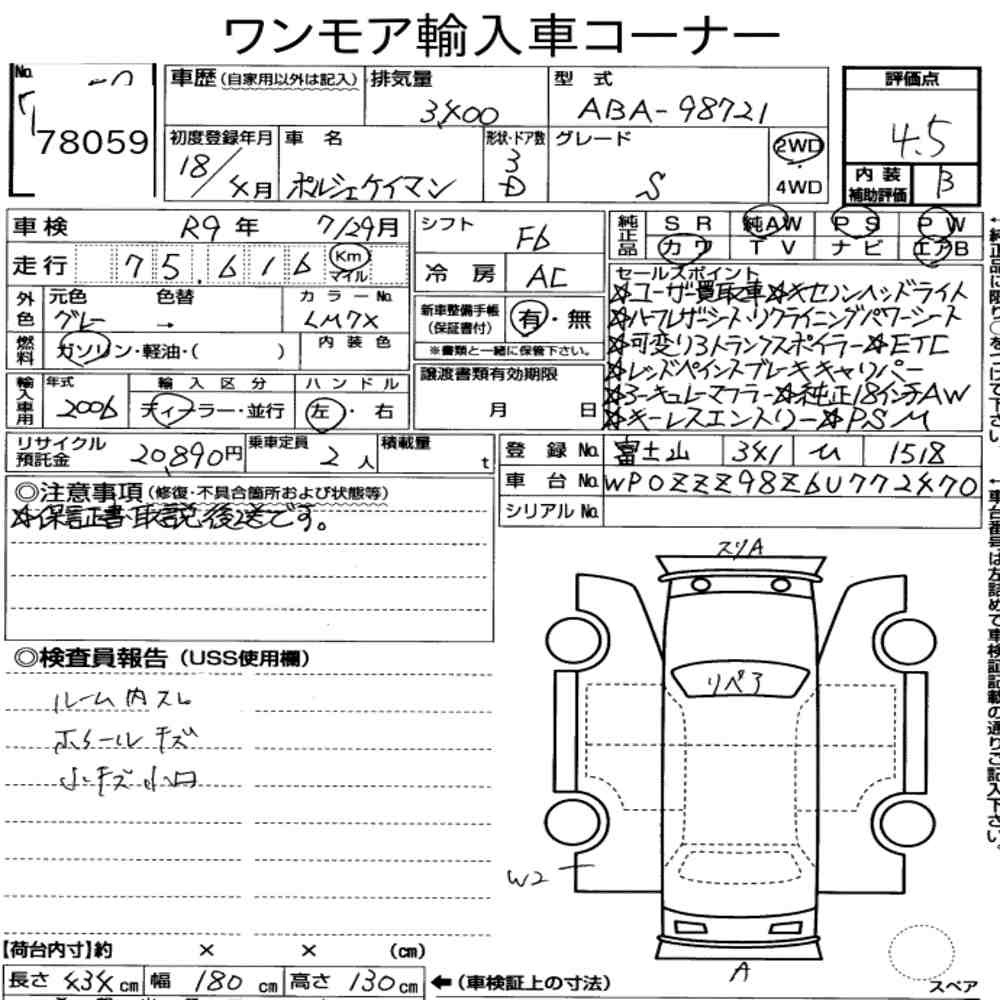 ワンモア輸入車コーナー
No.
78059
車歴 (自家用以外は記入)
排気量
3,400
型 式
ABA-98721
評価点
4.5
初度登録年月
18/4月
車 名
ポルシェケイマン
形状・ドア数
3
D
グレード
S
2WD
4WD
内装
補助評価
B
車検 R9年 7/29月
シフト F6
純正品
SR 純AW PS PW
カワ TV ナビ エアB
走行 75,616 Km マイル
冷房 AC
セールスポイント
☆ユーザー買取車☆キセノンヘッドライト
☆ハーフレザーシート・リクライニングパワーシート
☆可変リヤトランクスポイラー☆ETC
☆レッドペイントブレーキキャリパー
☆スーキュレーマフラー☆純正18インチAW
☆キーレスエントリー☆PSM
外色
元色 色替
グレー →
カラーNo.
LM7X
新車整備手帳
(保証書付)
有・無
※書類と一緒に保管下さい。
燃料
ガソリン・軽油・( )
内装色
輸入車用
年式
2006
輸入区分
ディーラー・並行
ハンドル
左・右
譲渡書類有効期限
月 日
リサイクル
預託金
20,890円
乗車定員
2人
積載量
t
登録No. 富士山 341 ル 1518
車台No. WP0ZZZ98Z6U772470
シリアルNo.
◎注意事項 (修復・不具合箇所および状態等)
☆保証書・取説後送です。
◎検査員報告 (USS使用欄)
ルーム内スレ
ホイールキズ
小キズ小凹
スリA
リペア
W2
A
スペア
【荷台内寸】約 × × (cm)
長さ 434cm 幅 180cm 高さ 130cm
←(車検証上の寸法)
←純正品に限り○をつけて下さい。
←車台番号は左詰めで車検証記載の通りご記入下さい。